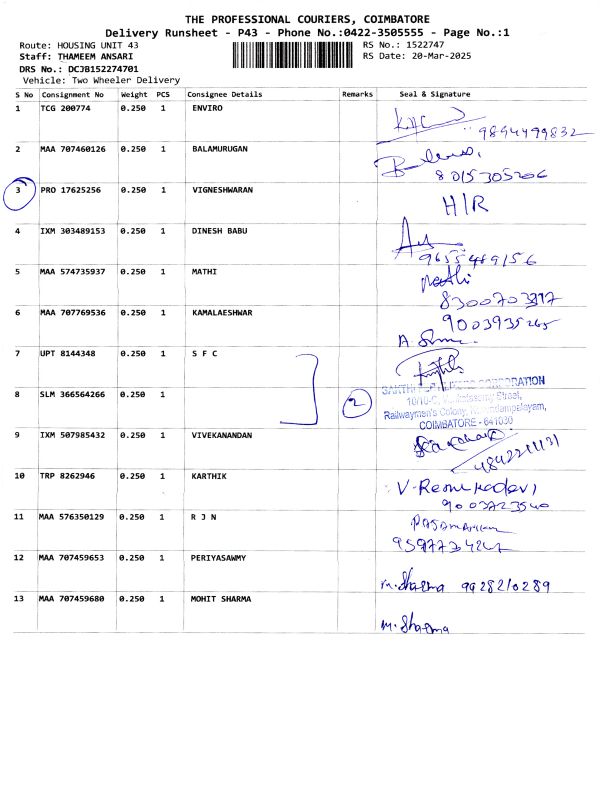 THE PROFESSIONAL COURIERS, COIMBATORE
Delivery Runsheet - P43 - Phone No.:0422-3505555 - Page No.:1
Route: HOUSING UNIT 43 RS No.: 1522747
Staff: THAMEEM ANSARI RS Date: 20-Mar-2025
DRS No.: DCJB152274701
Vehicle: Two Wheeler Delivery
S No Consignment No Weight PCS Consignee Details Remarks Seal & Signature
1 TCG 200774 0.250 1 ENVIRO
9894499832
2 MAA 707460126 0.250 1 BALAMURUGAN
8015305206
3 PRO 17625256 0.250 1 VIGNESHWARAN H/R
4 IXM 303489153 0.250 1 DINESH BABU
9655489156
5 MAA 574735937 0.250 1 MATHI Mathi
6 MAA 707769536 0.250 1 KAMALAESHWAR 9003935265
7 UPT 8144348 0.250 1 S F C
8 SLM 366564266 0.250 1 2
CORPORATION
Street,
Railwaymen's Colony,
COIMBATORE - 641030
9 IXM 507985432 0.250 1 VIVEKANANDAN
10 TRP 8262946 0.250 1 KARTHIK
9003723540
11 MAA 576350129 0.250 1 R J N
12 MAA 707459653 0.250 1 PERIYASAWMY
M. Sharma 9928210289
13 MAA 707459680 0.250 1 MOHIT SHARMA
M. Sharma